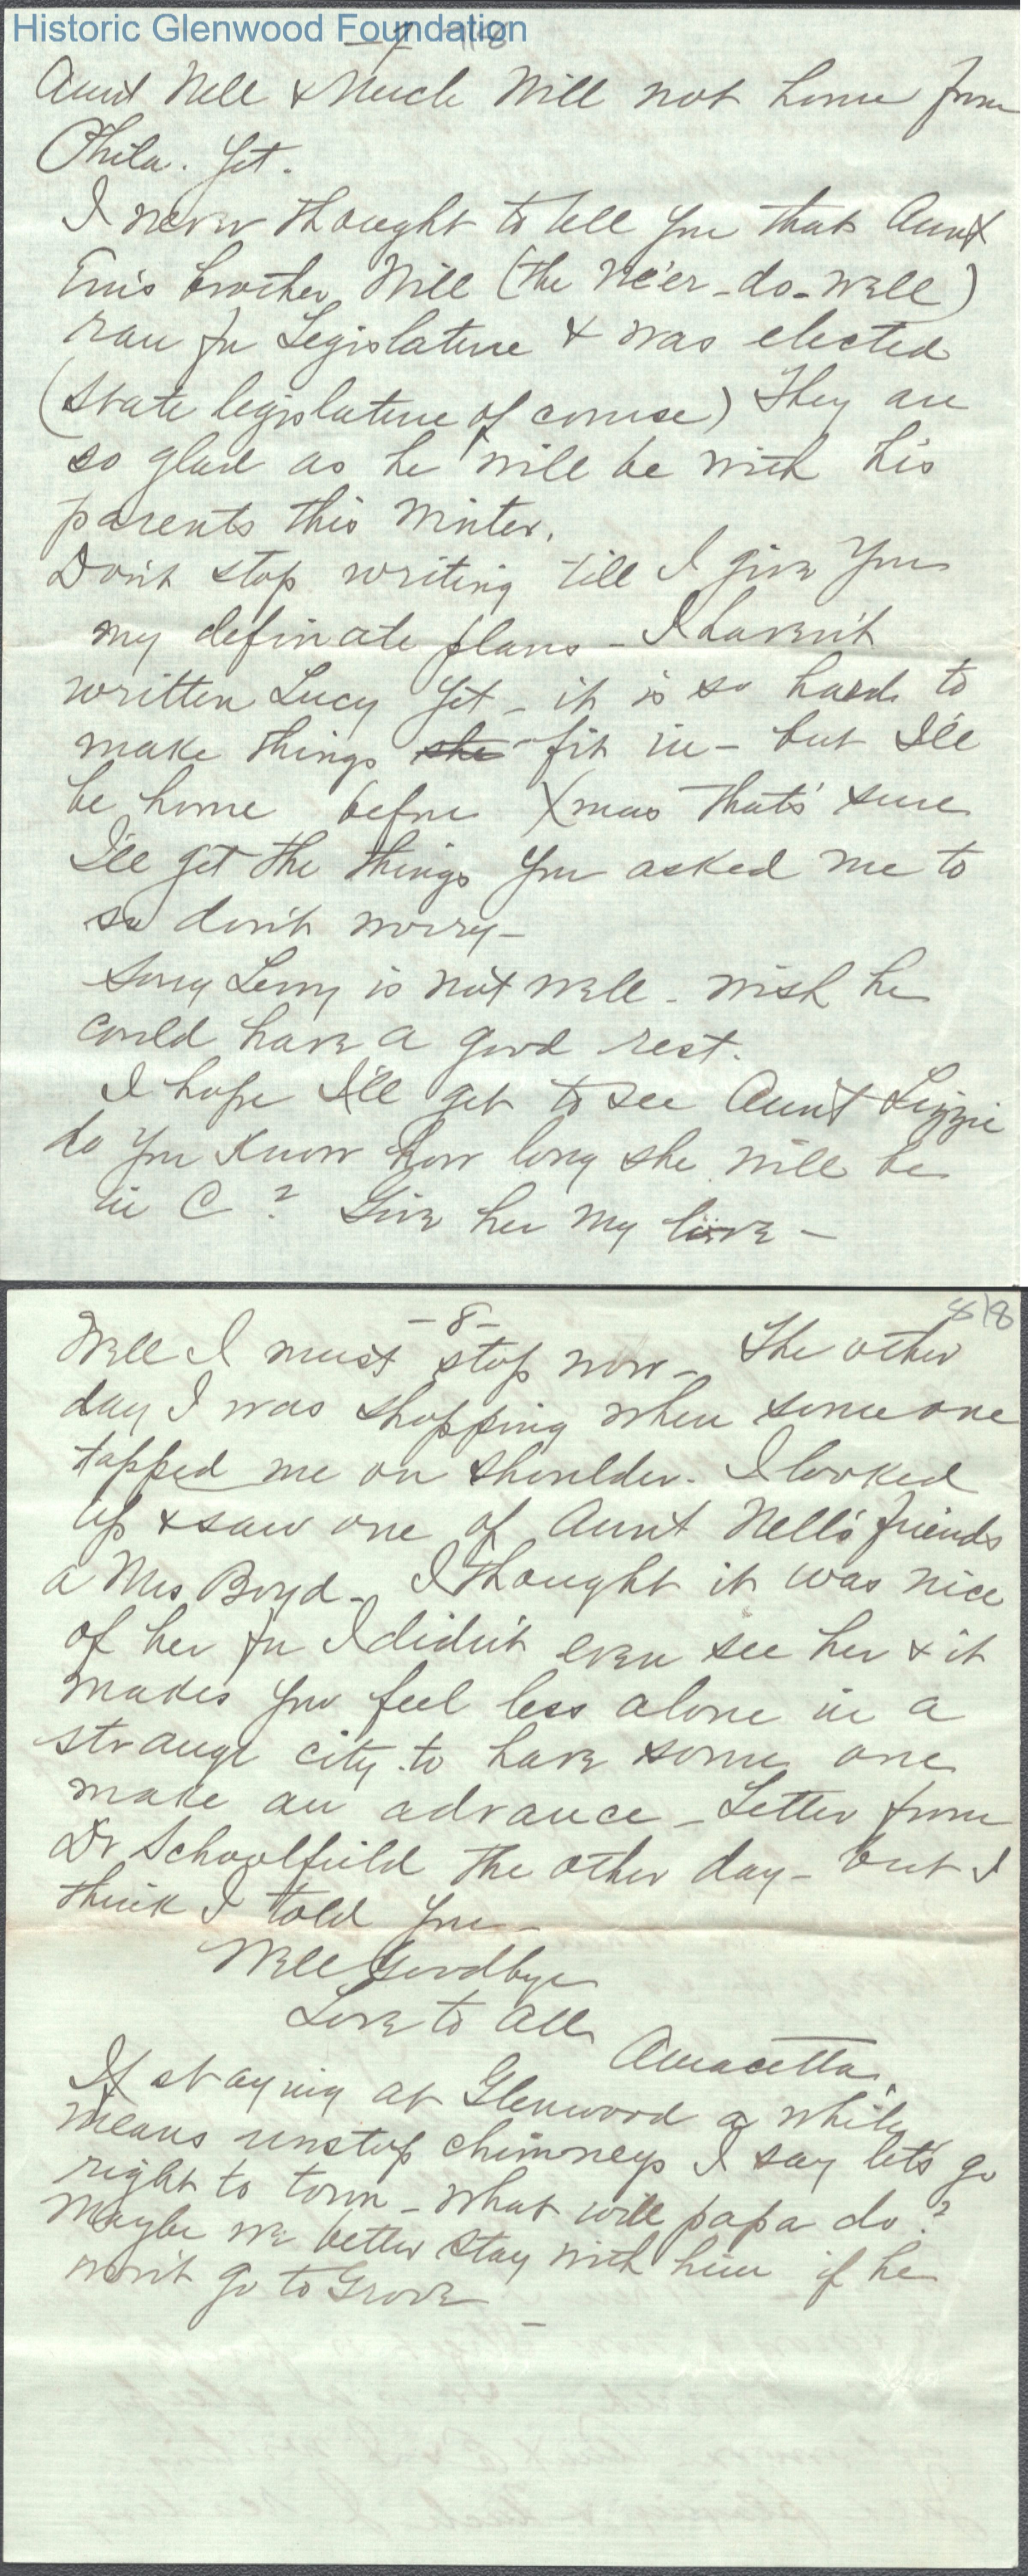 Historic Glenwood Foundation
-7-
Aunt Nell & Uncle Will not home from
Phila. yet.
I never thought to tell you that Aunt
Em's brother Will (the ne'er-do-well)
ran for Legislature & was elected
(state legislature of course) They are
so glad as he will be with his
parents this winter.
Don't stop writing till I give you
my definate plans - I haven't
written Lucy yet - it is so hard to
make things she fit in - but I'll
be home before Xmas that's sure
I'll get the things you asked me to
so don't worry -
Sorry Leny is not well - wish he
could have a good rest.
I hope I'll get to see Aunt Lizzie
do you know how long she will be
in C? Give her my love -
8/8
-8-
Well I must stop now - The other
day I was shopping when some one
tapped me on shoulder. I looked
up & saw one of Aunt Nell's friends
a Mrs Boyd - I thought it was nice
of her for I didn't even see her & it
makes you feel less alone in a
strange city to have some one
make an advance - Letter from
Dr Schoolfield the other day - but I
think I told you -
Well Goodbye
Love to all
Amacetta.
If staying at Glenwood a while
means unstop chimneys I say let's go
right to town - what will papa do?
Maybe we better stay with him if he
won't go to Grove -